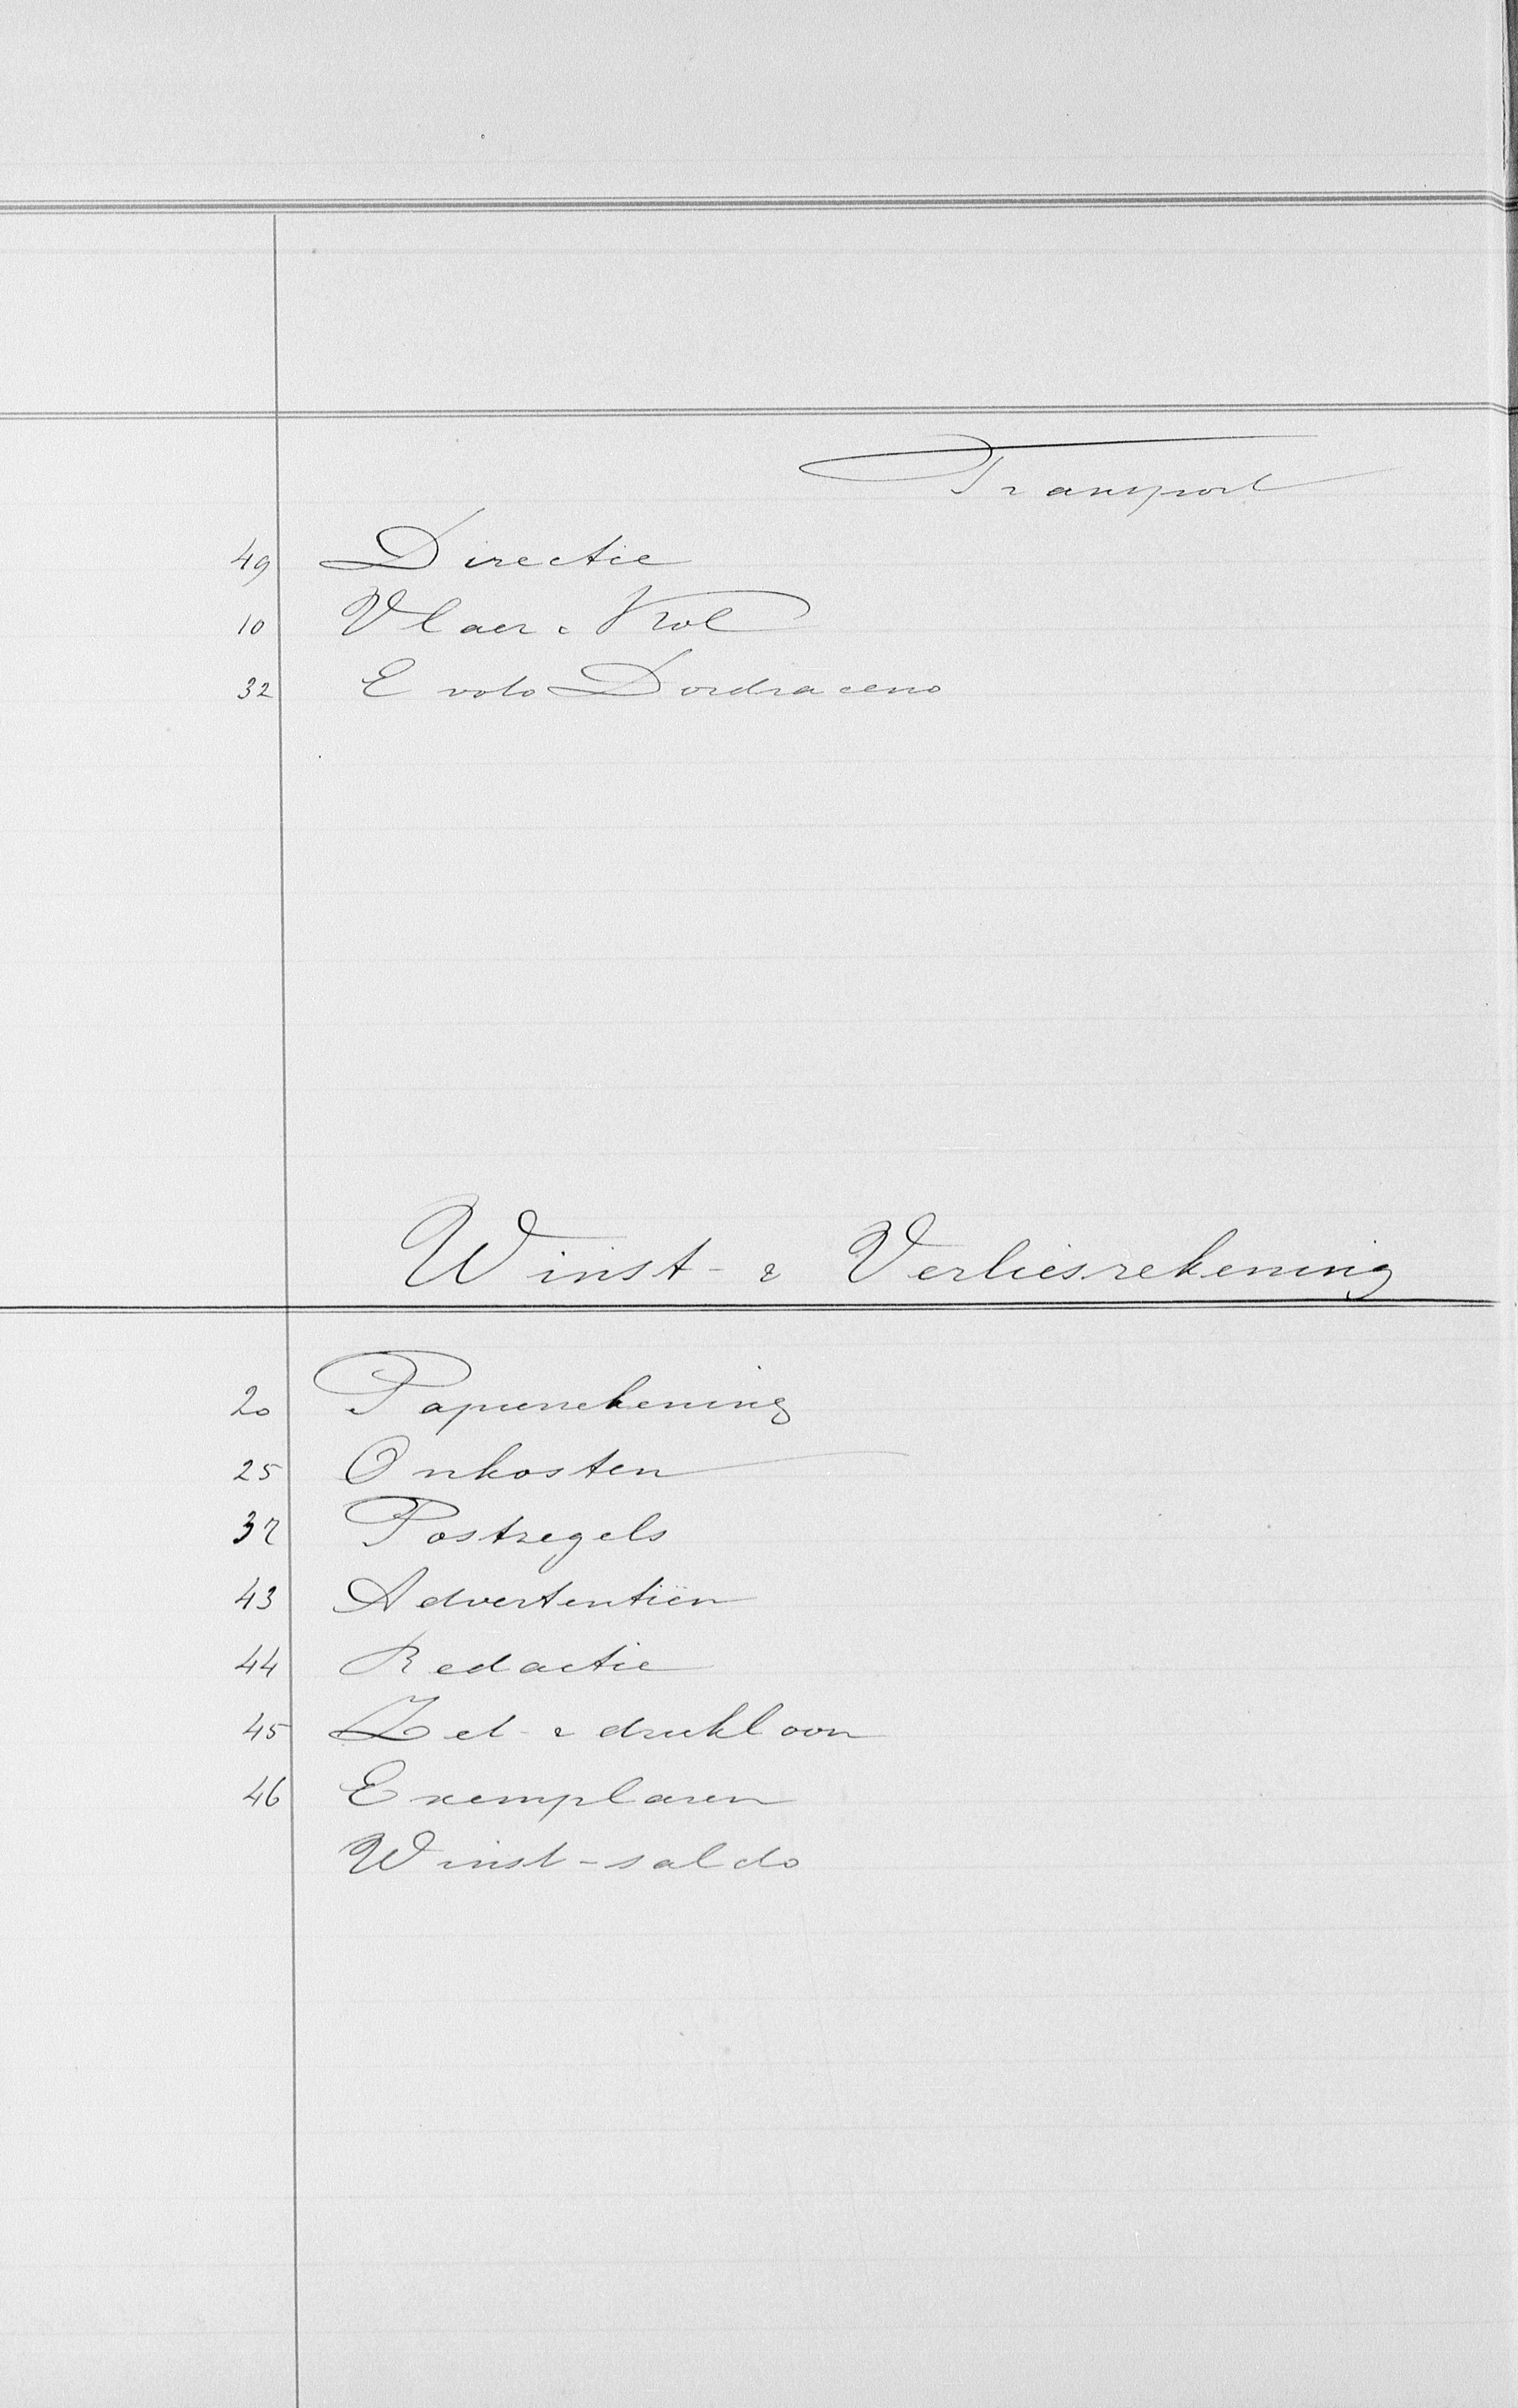 Transport
49 Directie
10 Vlaer & Kol
32 E voto Dordraceno
Winst- & Verliesrekening
20 Papierrekening
25 Onkosten
37 Postzegels
43 Advertentiën
44 Redactie
45 Zet- & drukloon
46 Exemplaren
Winst-saldo